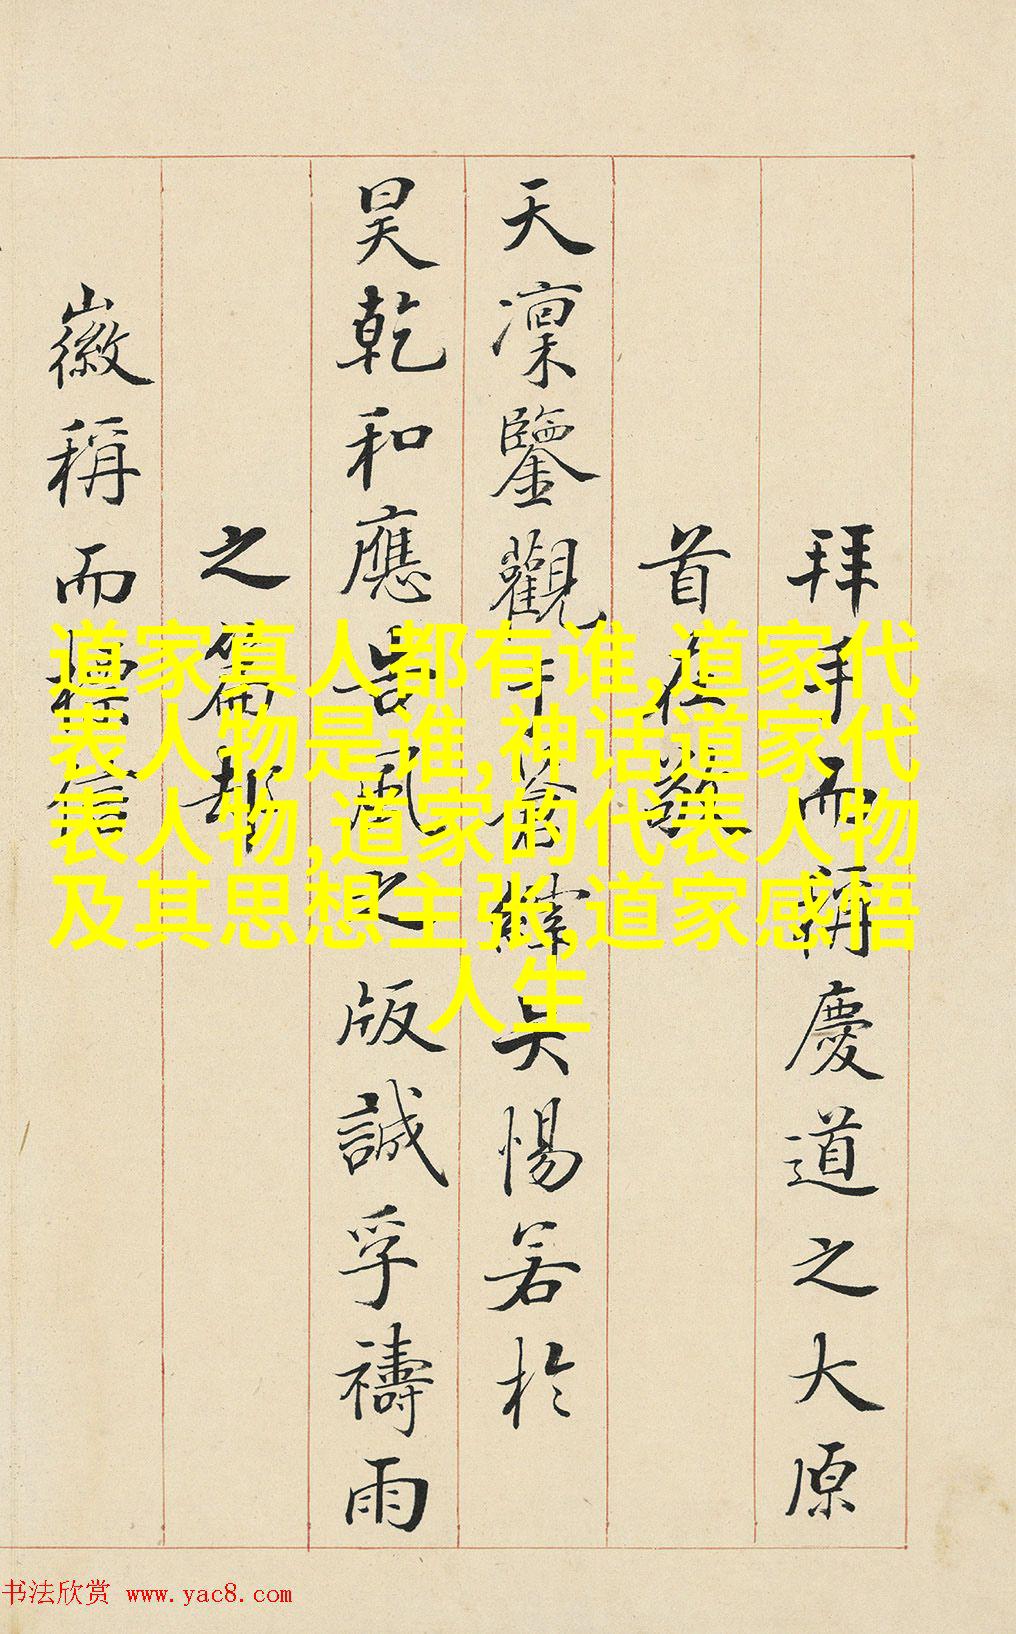 拜手而稱慶道之大原
首在敬
天凜鑒觀於
矣惕若於
昊乾和應占風之版誠孚禱雨
之篇都
徽稱而
道家真人都有谁,道家代
表人物是谁,神话道家代
表人物,道家的代表人物
及其思想主张,道家感悟
人生
书法欣赏 www.yac8.com